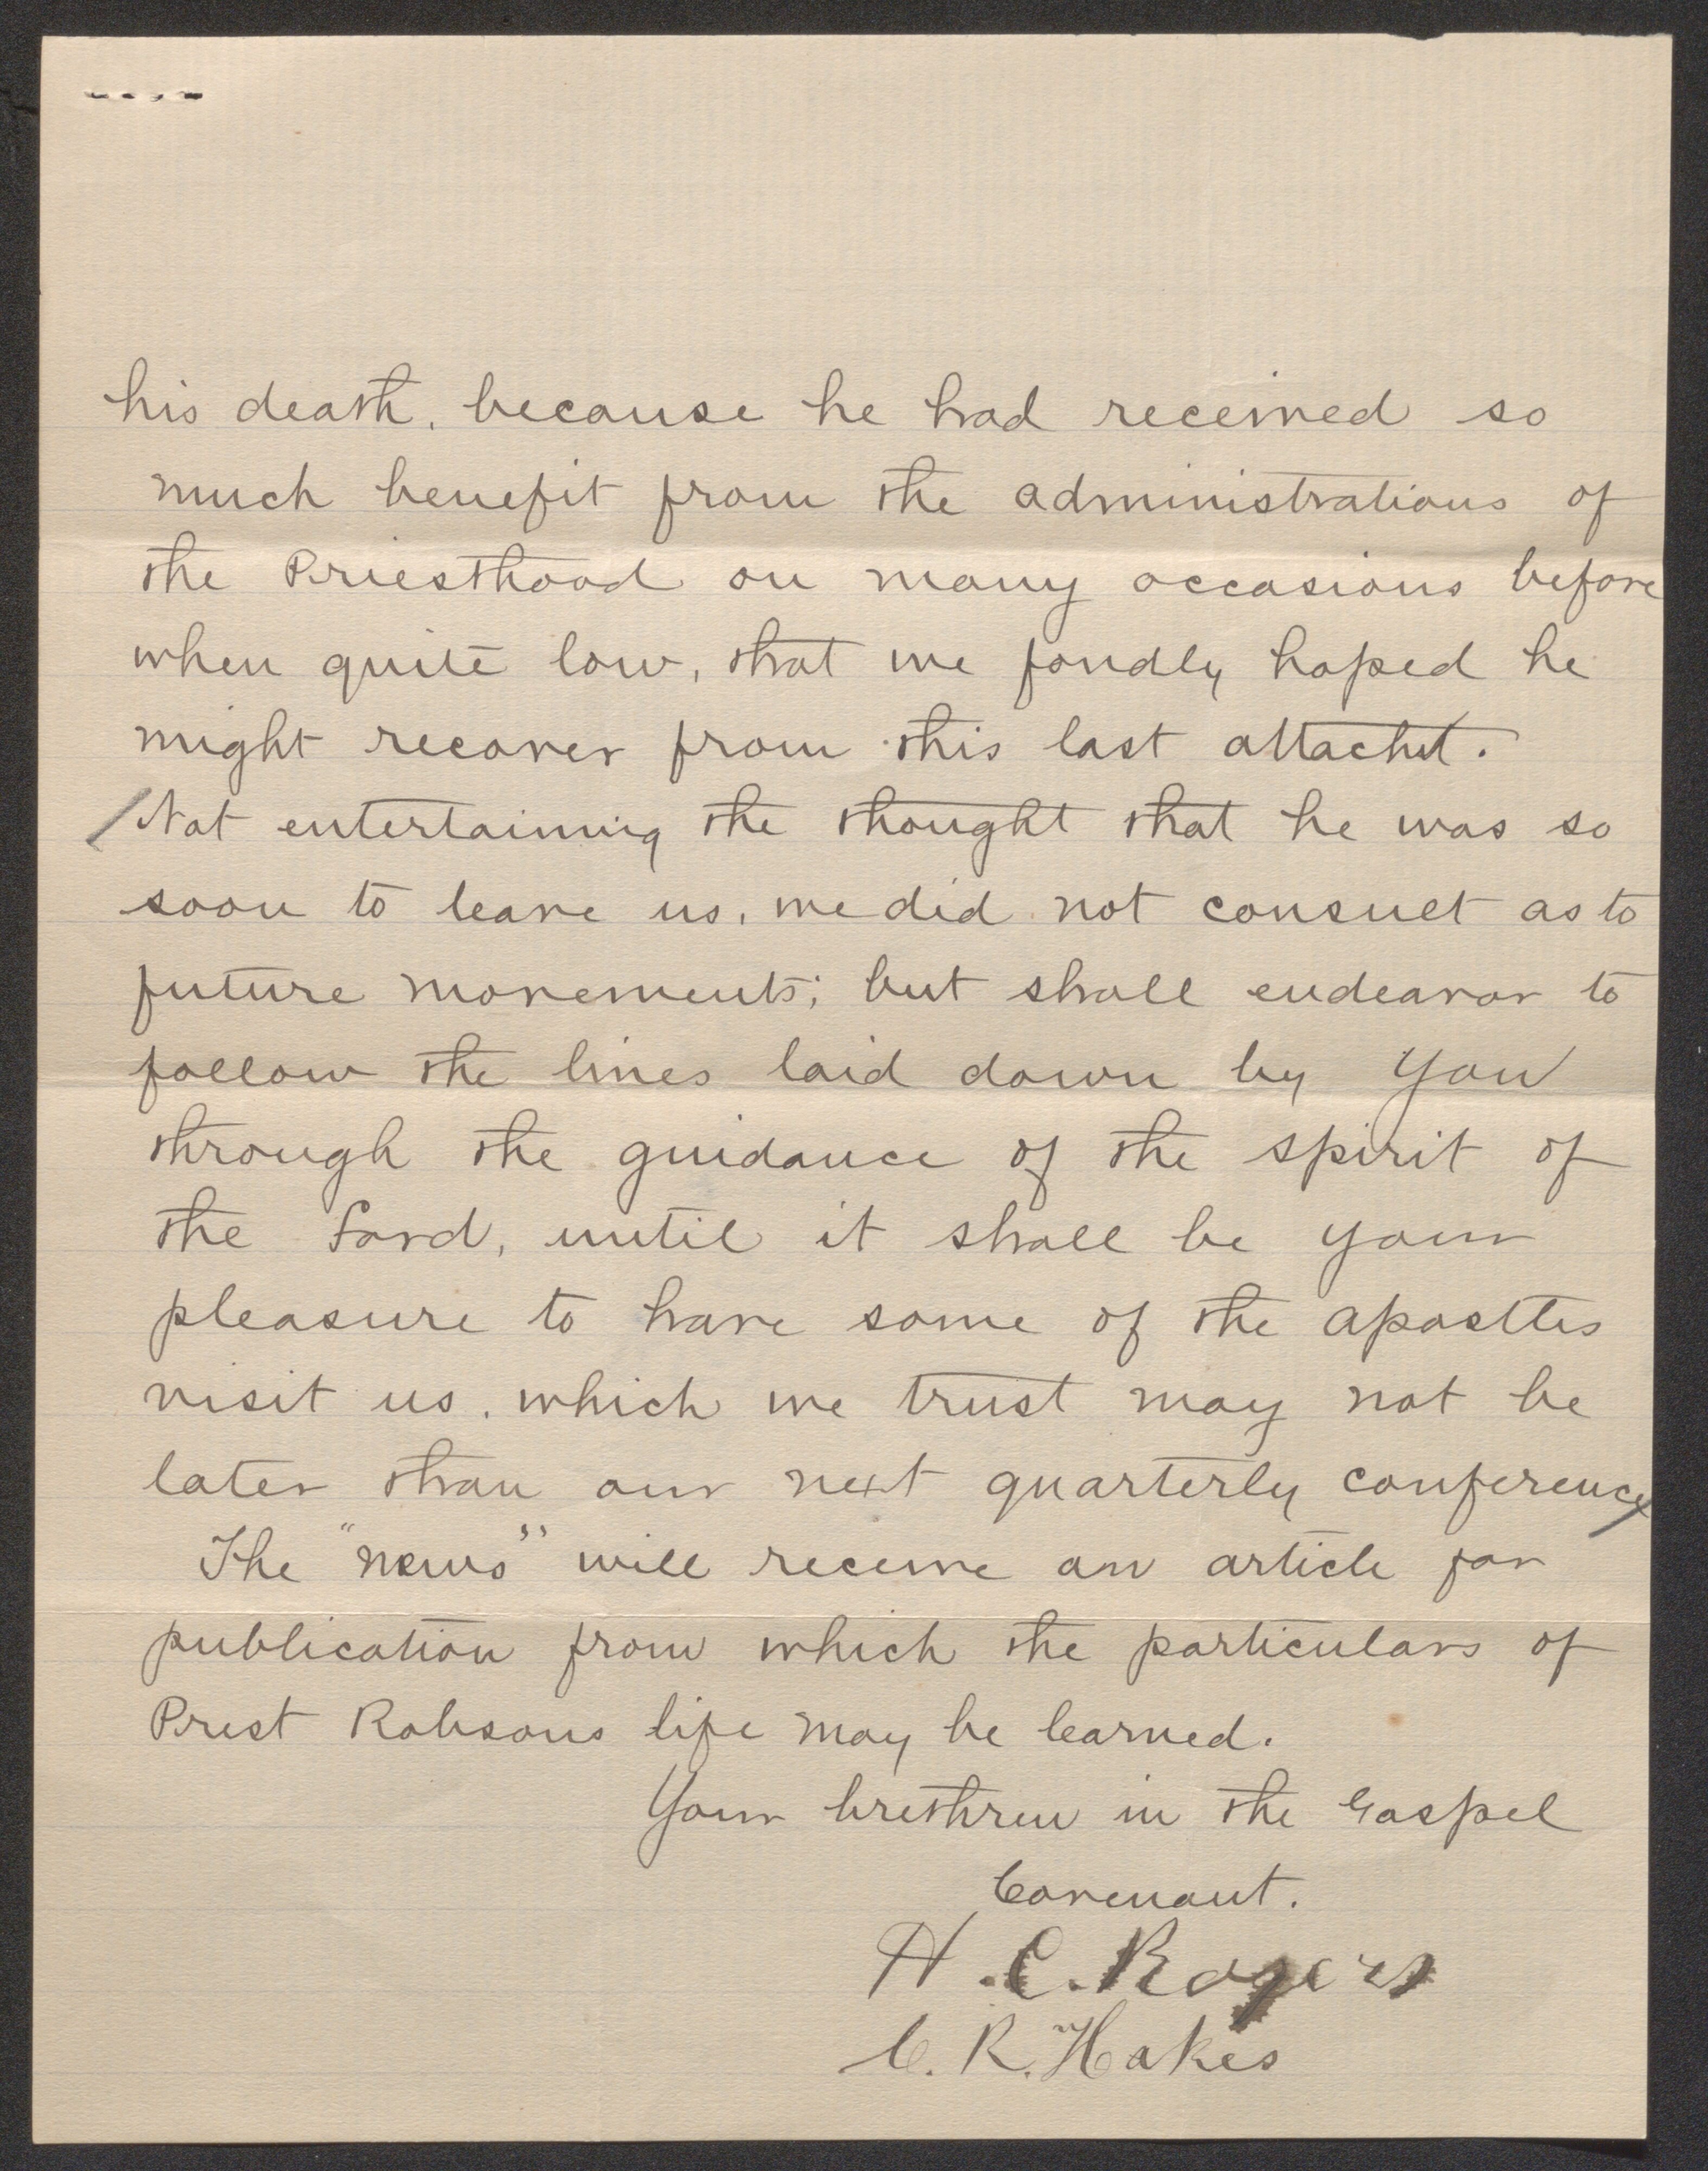 his death, because he had received so
much benefit from the administrations of
the Priesthood on many occasions before
when quite low, that we fondly hoped he
might recover from this last attackt.
Not entertaining the thought that he was so
soon to leave us, we did not consult as to
future movements; but shall endeavor to
follow the lines laid down by you
through the guidance of the spirit of
the Lord, until it shall be your
pleasure to have some of the apostles
visit us, which we trust may not be
later than our next quarterly conference
The "news" will receive an article for
publication from which the particulars of
Prest Robsons life may be learned.
Your brethren in the Gospel
Covenant.
H. C. Rogers
C. R. Hakes